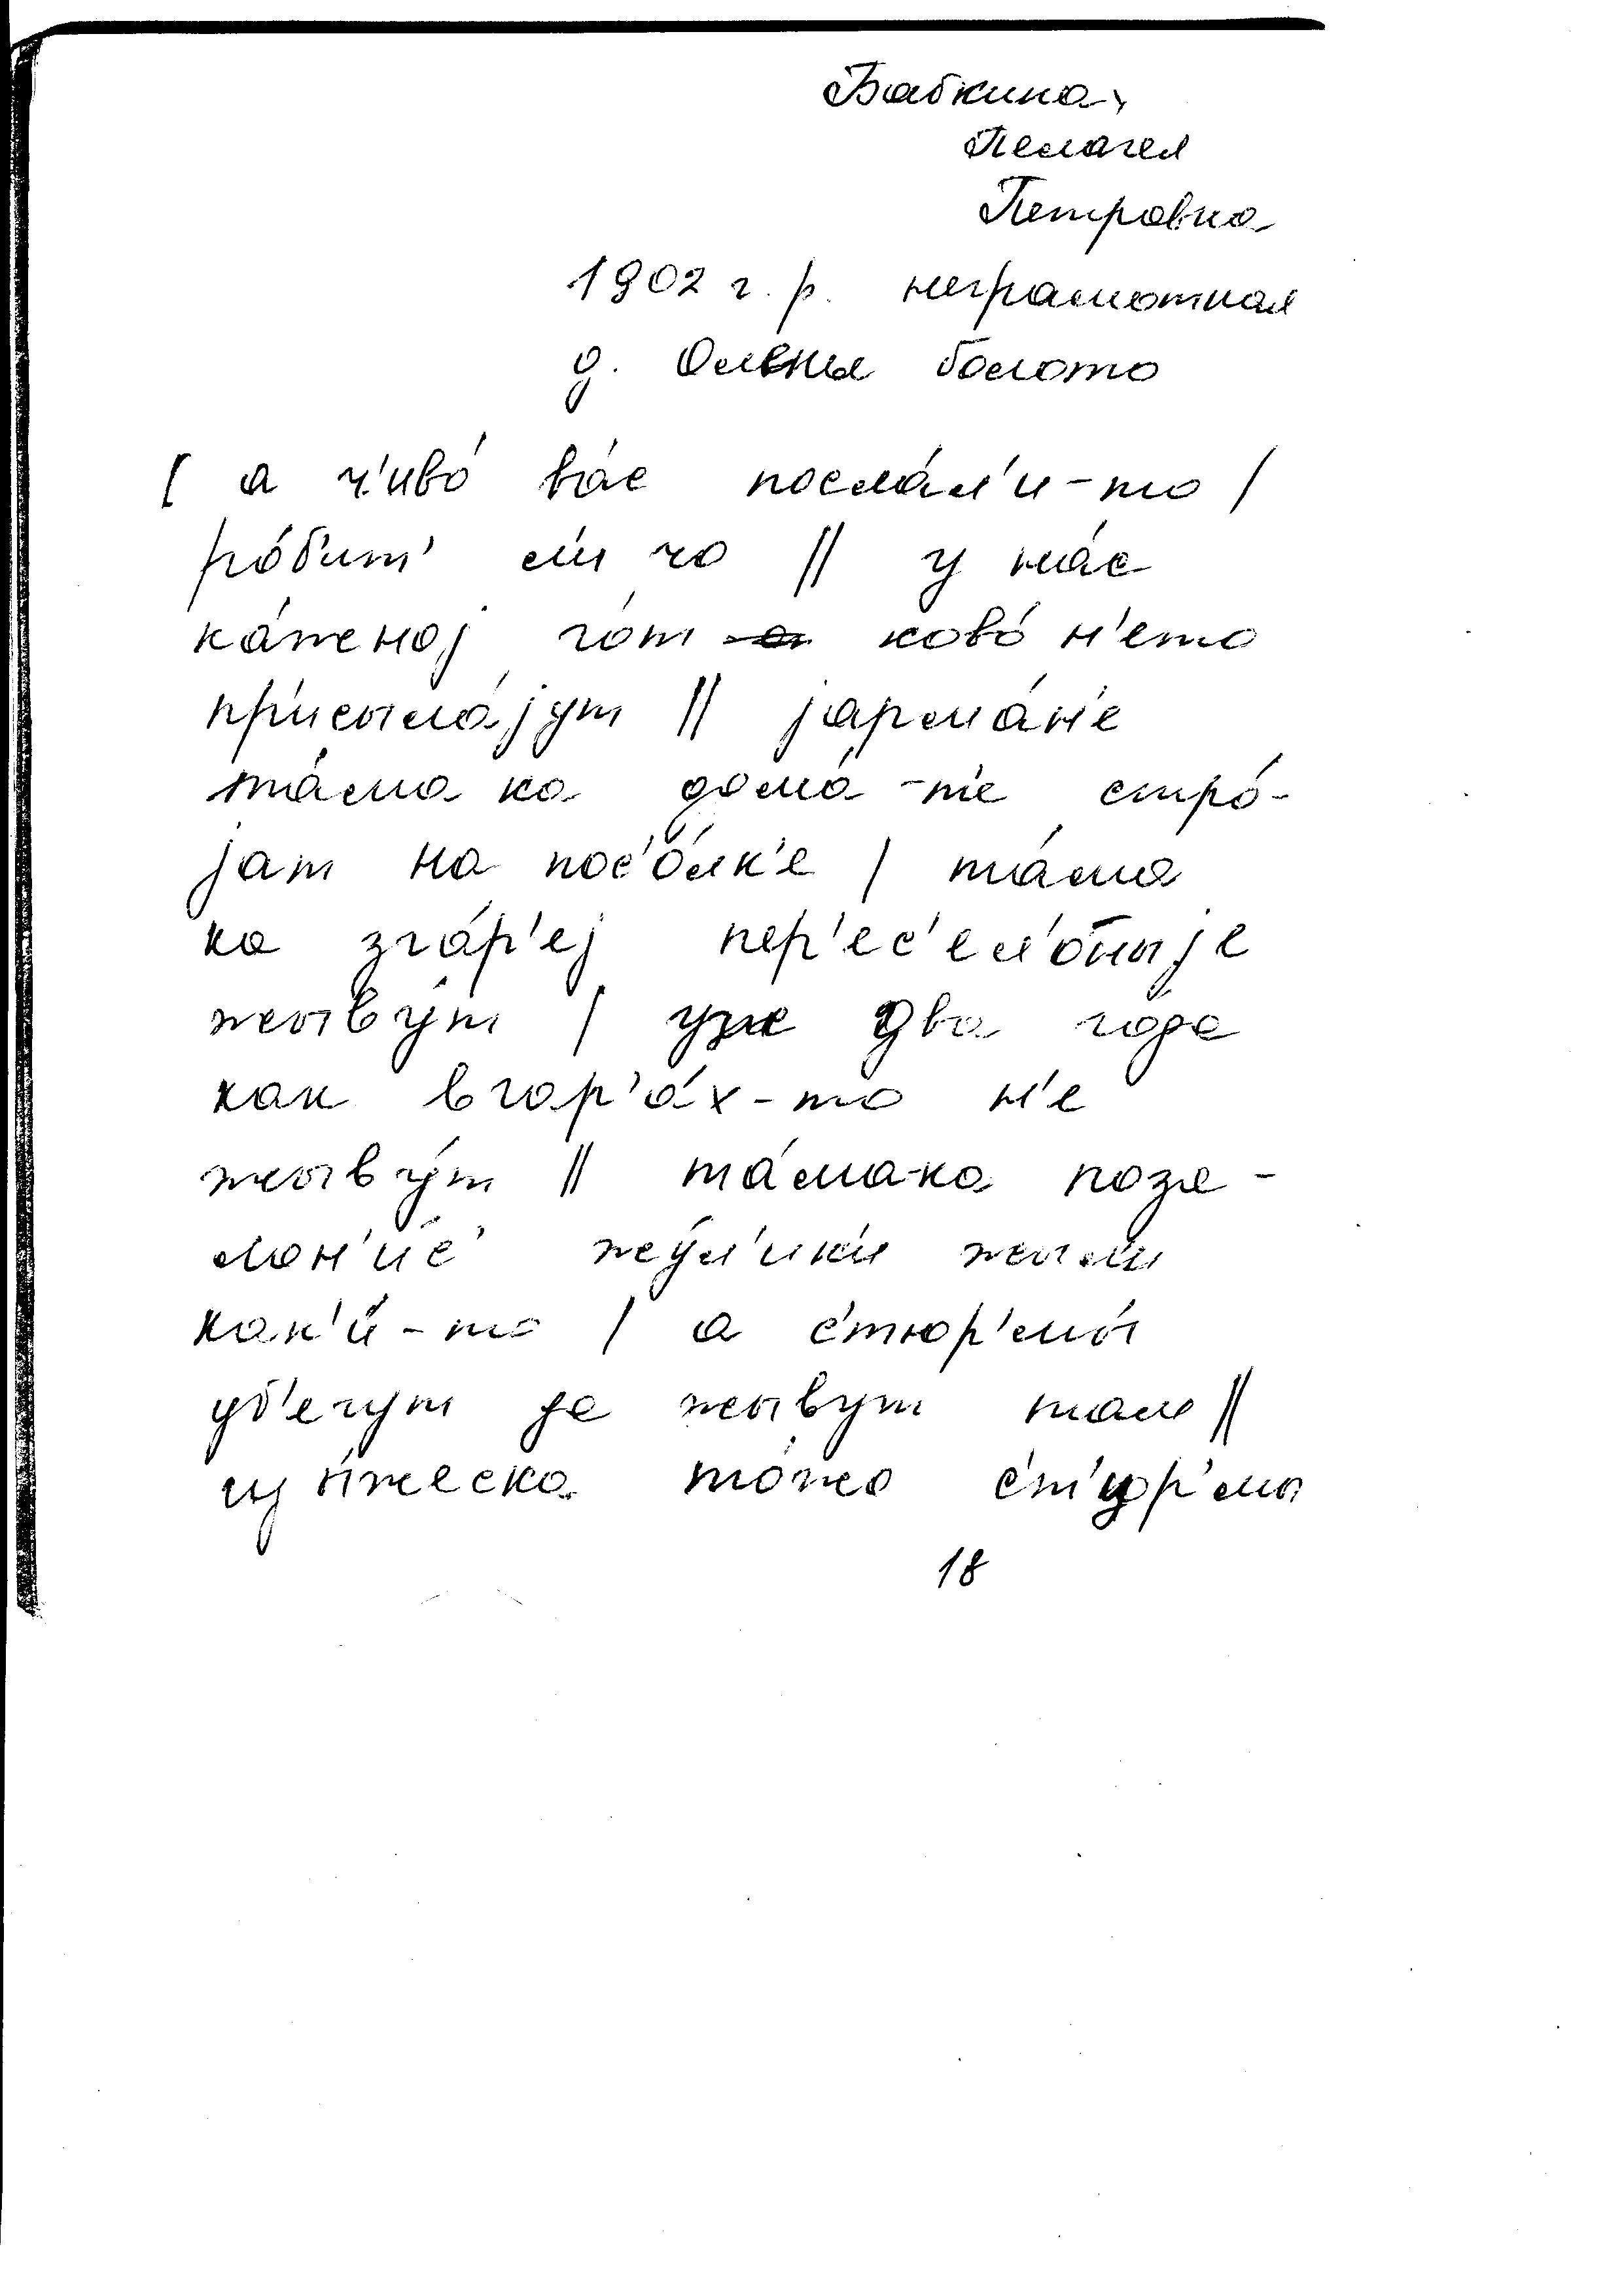 Бабкина
Пелагея
Петровна
1902 г. р. неграмотная
д. болото
[ а ч'иво́ ва́с посла́л'и-то /
ро́б'ит' ли чо // у на́с
ка́жној го́т ково́ н'ето
пр'исыла́јут // јарма́н'е
та́мака дома́-т'е стро́-
јат на пос'о́лк'е / та́ма
ка зга́р'ej пер'ес'ел'о́ныје
жыву́т / уже два года
как в гар'а́х-то н'е
жыву́т // та́мака поза-
мон'и́с' жу́л'ики жыли
как'и́-то / а с'т'ур'мы́
уб'егут да жывут там //
то́жо с'т'ур'мы
18